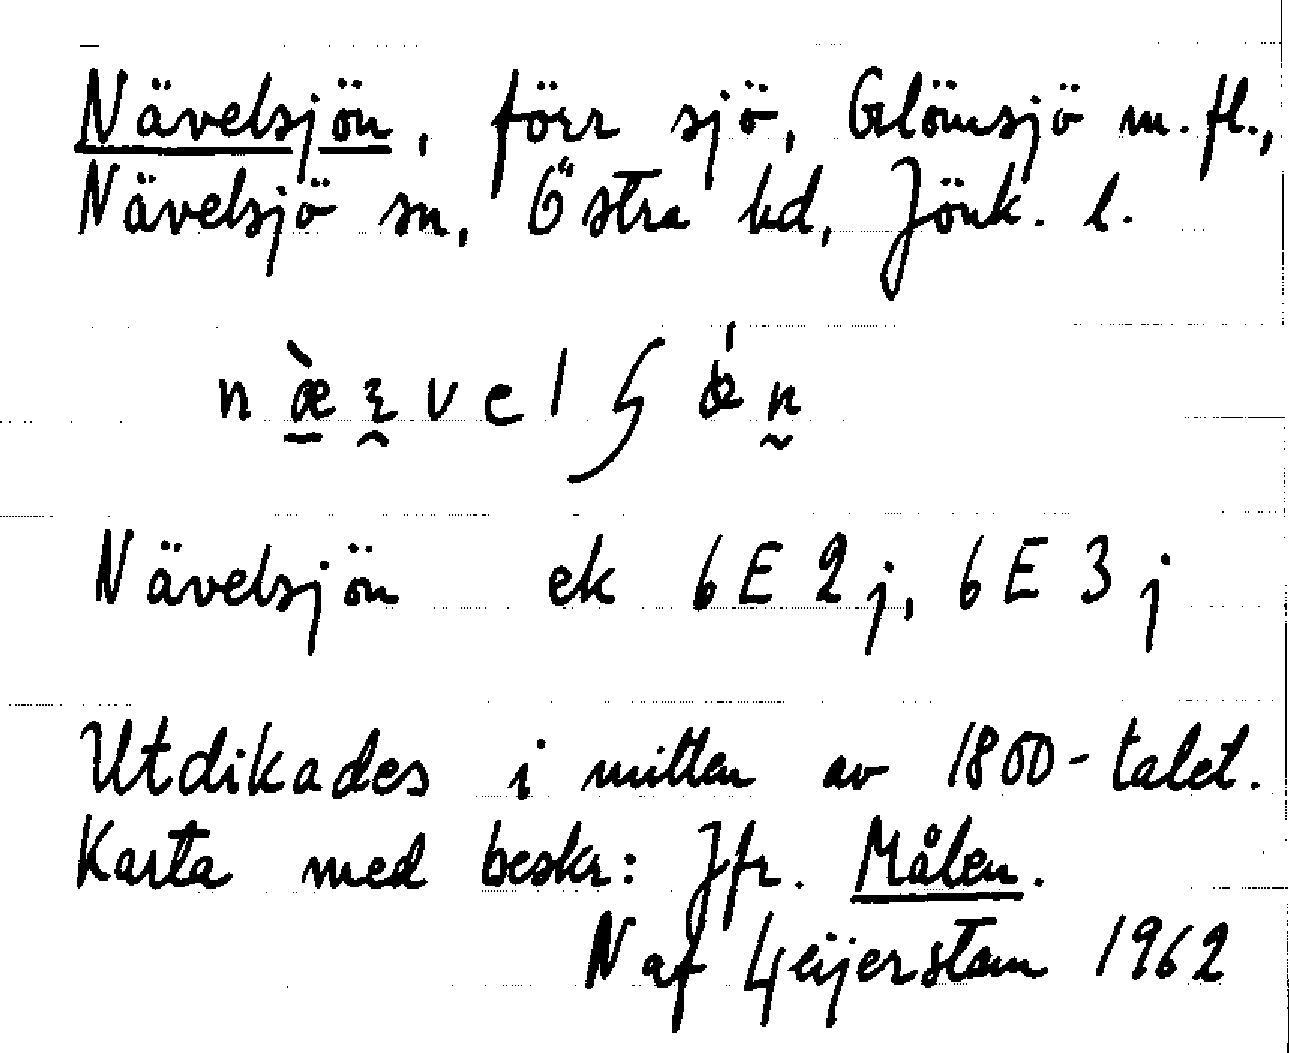 Nävelsjön, förr sjö, Glömsjö m. fl.,
Nävelsjö sn, Östra hd, Jönk. l.
Nävelsjön ek 6E2j, 6E3j
Utdikades i mitten av 1800-talet.
Karta med beskr: Jfr. Målen.
N af Geijerstam 1962